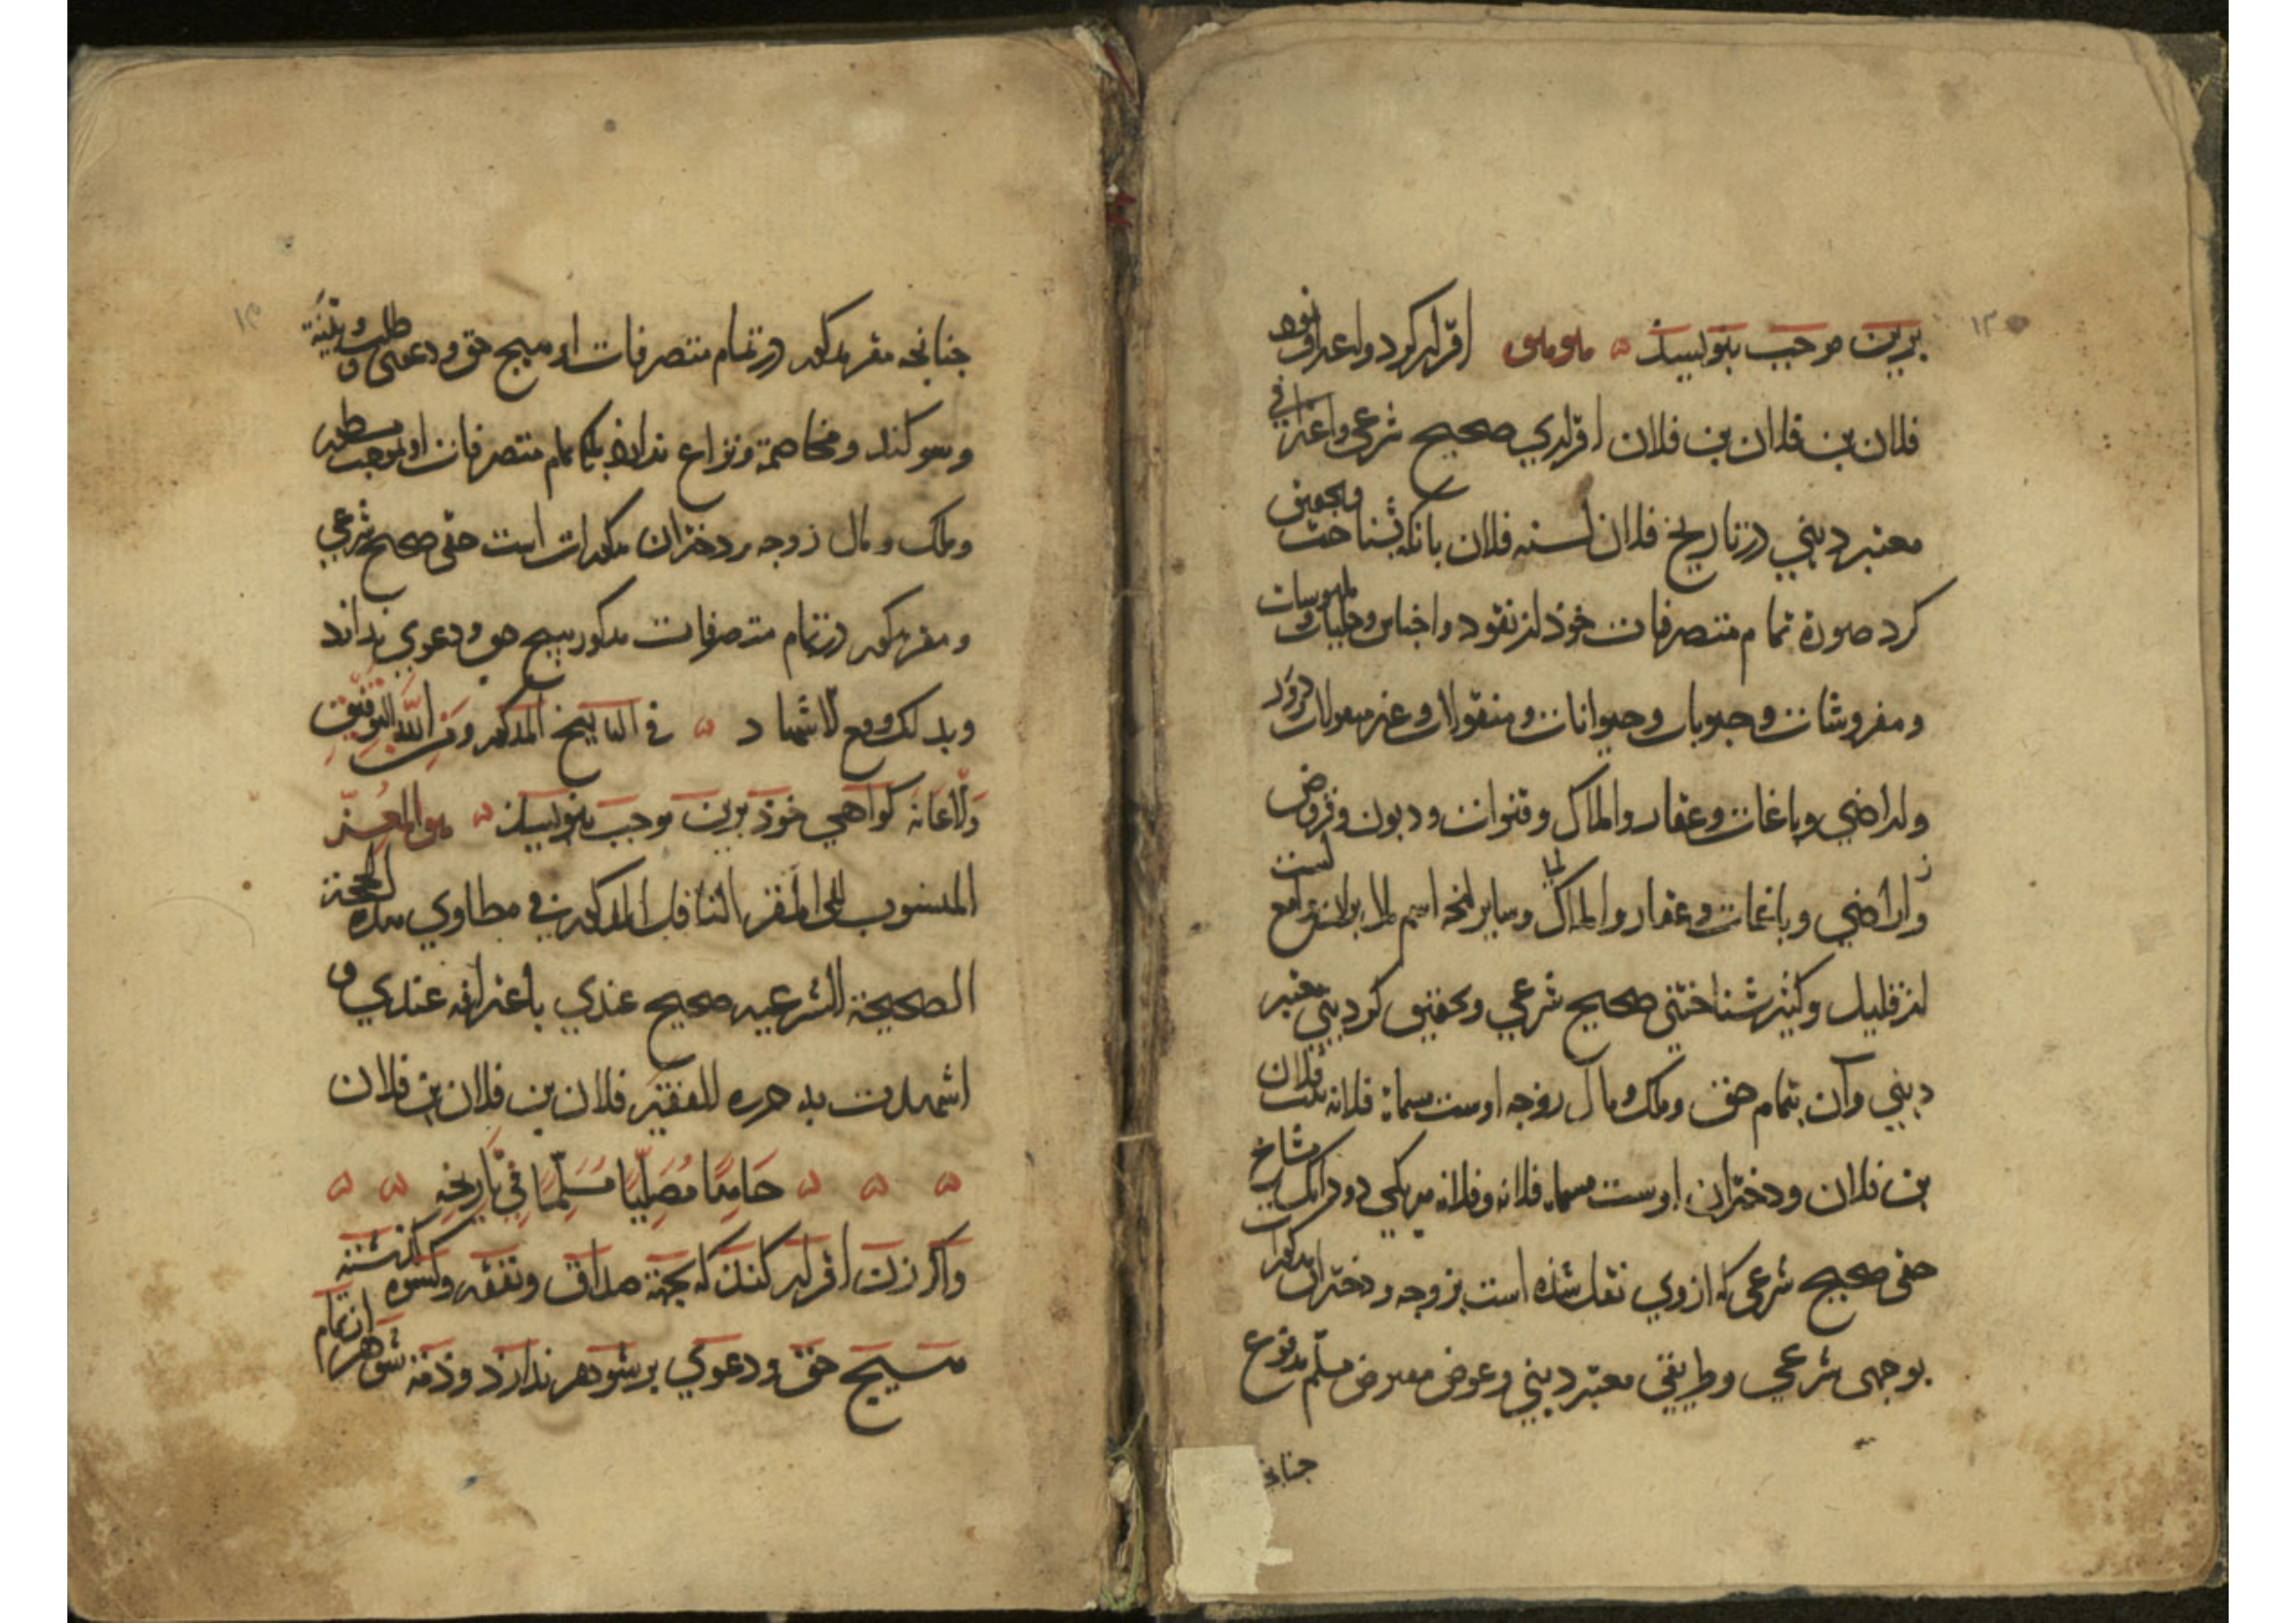 برین موجب بنویسند هو هو اقرار کرد و اعتراف نمود
فلان بن فلان بن فلان اقراری صحیح شرعی و اعترافی
معتبر دینی در تاریخ فلان لسنه فلان بانکه بشناخت و تحقیق
کرد صورة تمام متصرفات خوذ از نقود و اجناس و حلیات و ملبوسات
و مفروشات و حبوبات و حیوانات و منقولات و غیر منقولات
و اراضی و باغات و عقار و املاک و قنوات و دیون و قروض
و اراضی و باغات و عقار و املاک و سایر انچه اسم
از قلیل و کثیر شناختنی صحیح شرعی و تحقیق کردنی معتبر
دینی و آن بتمام حق و ملک و مال زوجه اوست مسماة فلانه بنت فلان
بن فلان و دختران اوست مسماة فلانه و فلانه هر یکی دو دانک مشاع
حقی صحیح شرعی که از وی نقل شذه است بزوجه و دختران مذکورات
بوجهی شرعی و طریقی معتبر دینی و عوض معوض مسلم مدفوع
جنانجه
جنانجه مقر مذکور در تمام متصرفات او هیج حق و دعوی و طلب و بینة
و سوکند و مخاصمة و نزاع ندارد بلکه تمام متصرفات او بموجب مسطور
و ملک و مال زوجه و دختران مذکورات است حقی صحیح شرعی
و مقر مذکور در تمام متصرفات مذکور هیج حق و دعوی ندارد
و بذلک وقع الاشهاد في التاریخ المذکور و من الله التوفیق
و الاعانه کواهی خوذ برین موجب بنویسند هو المعز
المنسوب الی المقر الناقل المذکور في مطاوي هذه الحجة
الصحیحة الشرعیه صحیح عندي باعترافه عندي و
اشهدت به حرره الفقیر فلان بن فلان بن فلان
حَامِدًا مُصَلِّیًا مُسَلِّمًا في تاریخه
و اکر زن اقرار کند که بجهة صداق و نفقه و کسوه کذشته
هیج حق و دعوی بر شوهر ندارذ و ذمة شوهر از تمام